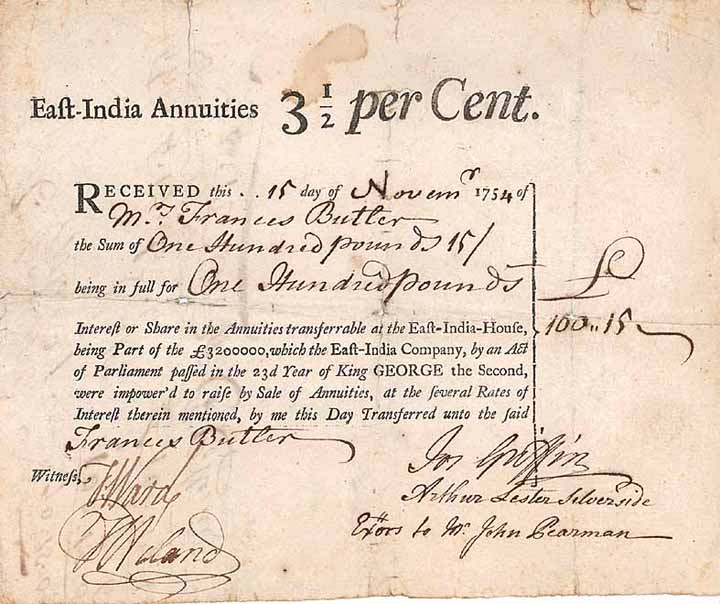 Eaſt-India Annuities 3 1/2 per Cent.
RECEIVED this . . 15 day of Novemr 1754 of
Mrs. Frances Butler
the Sum of One Hundred pounds 15/
being in full for One Hundred pounds
£
100,, 15
Intereſt or Share in the Annuities transferrable at the Eaſt-India-Houſe,
being Part of the £3200000, which the Eaſt-India Company, by an Act
of Parliament paſſed in the 23d Year of King GEORGE the Second,
were impower'd to raiſe by Sale of Annuities, at the ſeveral Rates of
Intereſt therein mentioned, by me this Day Transferred unto the ſaid
Frances Butler
Witneſs,
Jos Griffin
Arthur Lester Silverside
Exors to Mr. John Pearman